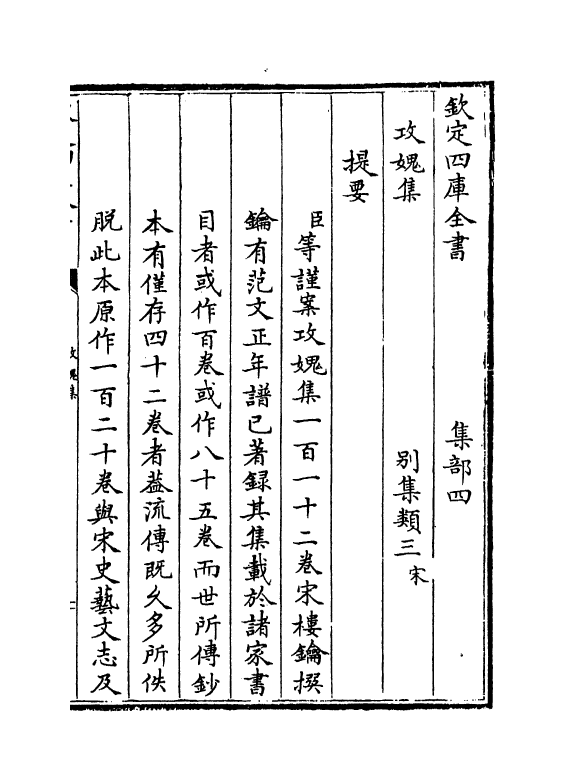 欽定四庫全書 集部四
攻媿集 別集類三宋
提要
臣等謹案攻媿集一百一十二卷宋樓鑰撰
鑰有范文正年譜已著録其集載於諸家書
目者或作百卷或作八十五卷而世所傳鈔
本有僅存四十二卷者葢流傳既乆多所佚
脱此本原作一百二十卷與宋史藝文志及
攻媿集